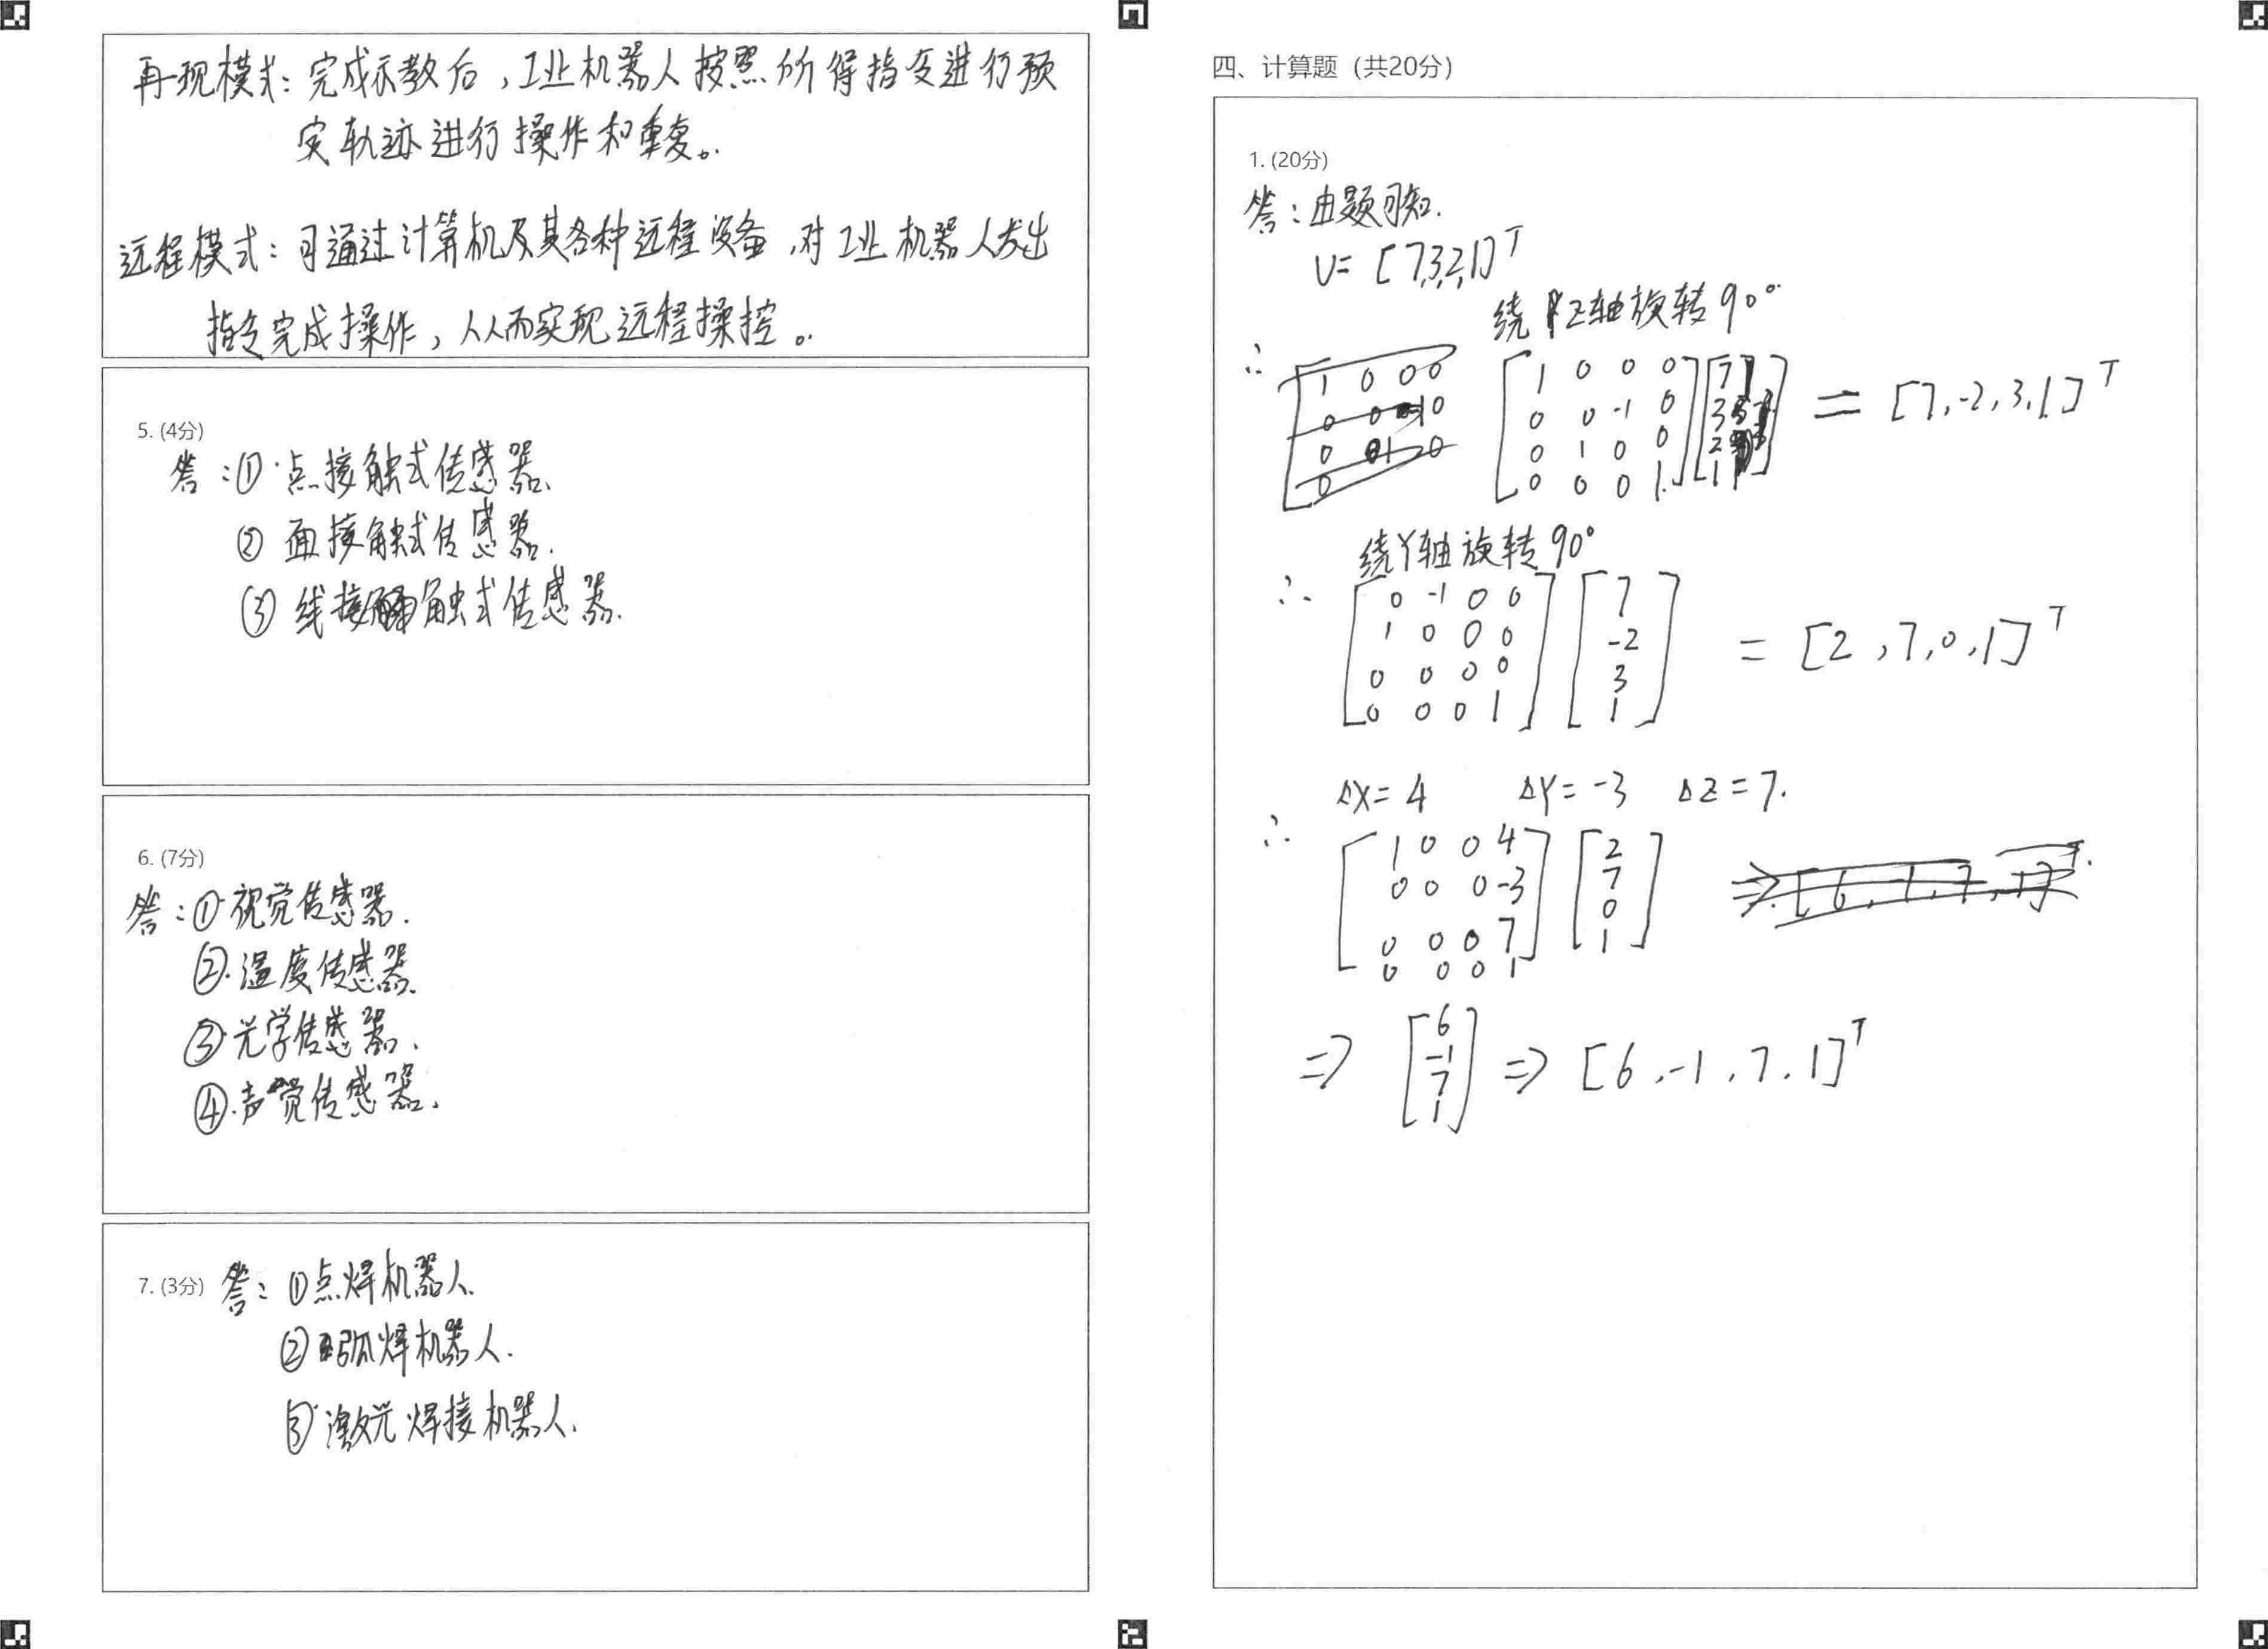 再现模式：完成示教后，工业机器人按照所得指令进行预
定轨迹进行操作和重复。
远程模式：可通过计算机及其各种远程设备，对工业机器人发出
指令完成操作，从而实现远程操控。
5. (4分)
答：①点接触式传感器.
② 面接触式传感器.
③ 线接触式传感器.
6. (7分)
答：①视觉传感器.
②.温度传感器.
③光学传感器.
④.声觉传感器.
7. (3分) 答：①点焊机器人.
②弧焊机器人.
③激光焊接机器人.
四、计算题（共20分）
1. (20分)
答：由题可知.
U= [7,3,2,1]ᵀ
绕Z轴旋转90°
∴ [1 0 0 0] [7]
[0 0 -1 0] [3]
[0 1 0 0] [2]
[0 0 0 1] [1] = [7,-2,3,1]ᵀ
绕Y轴旋转90°
∴ [0 -1 0 0] [7]
[1 0 0 0] [-2]
[0 0 0 0] [3]
[0 0 0 1] [1] = [2,7,0,1]ᵀ
ΔX=4 ΔY=-3 ΔZ=7.
∴ [1 0 0 4] [2]
[0 0 0 -3] [7]
[0 0 0 7] [0]
[0 0 0 1] [1]
⇒ [6 -1 7 1] ⇒ [6,-1,7,1]ᵀ